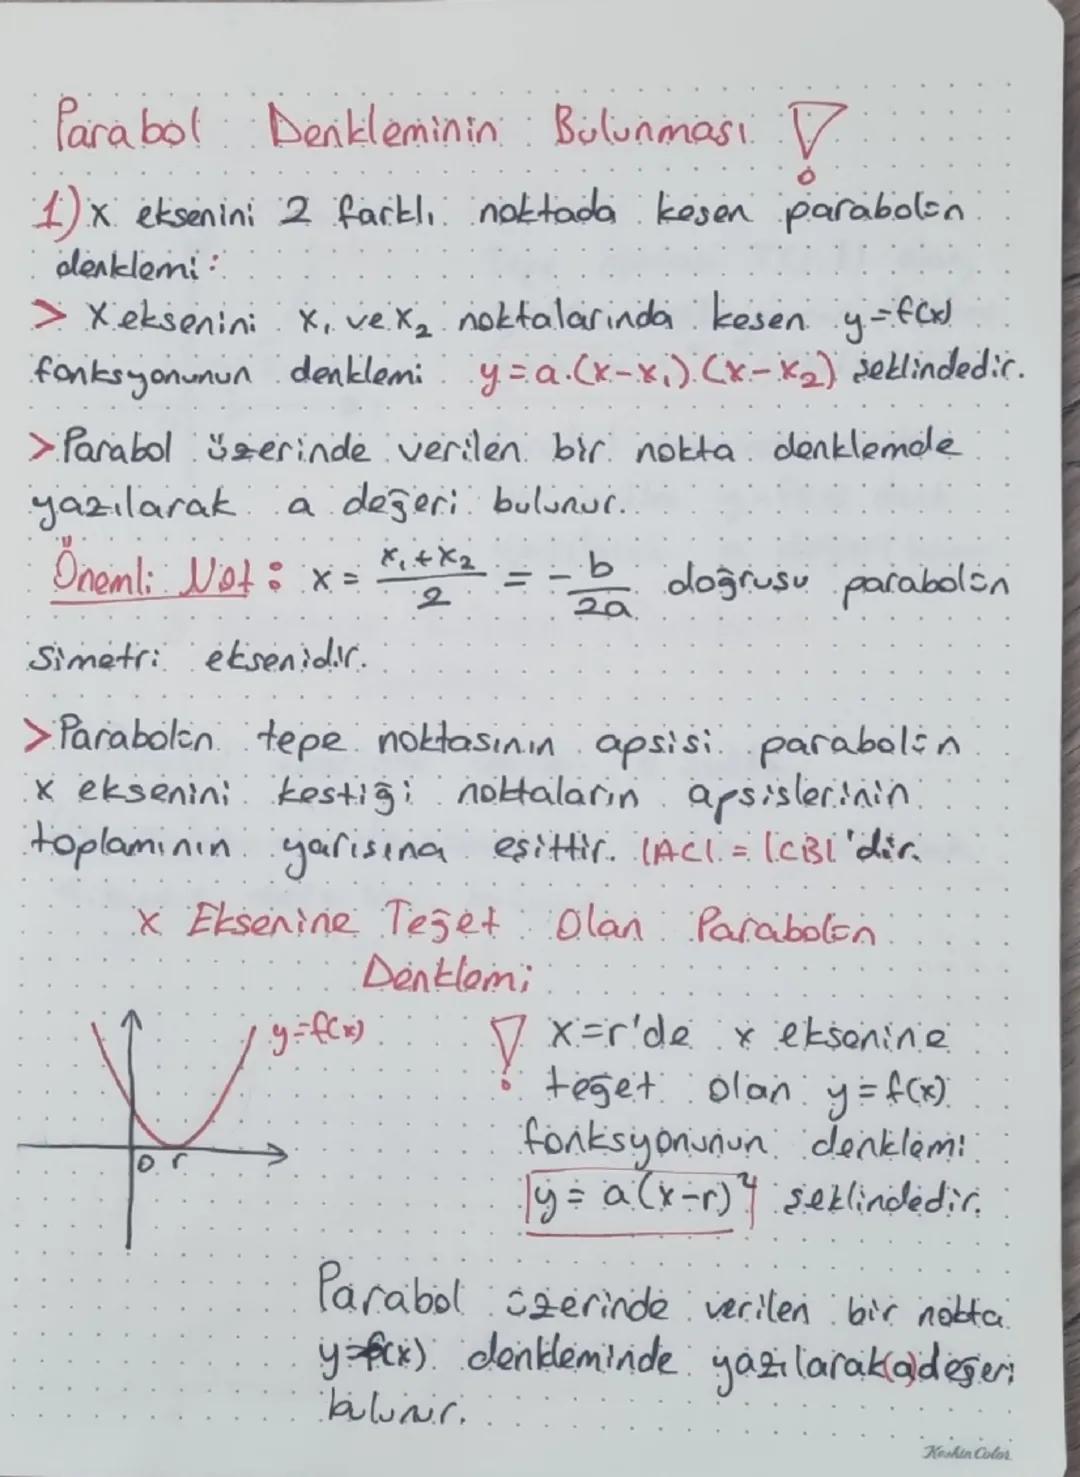 Parabol Denkleminin Bulunması !
1) x eksenini 2 farklı noktada kesen parabolün
denklemi:
> X eksenini x₁ ve x₂ noktalarında kesen y=f(x)
fonksyonunun denklemi y=a.(x-x₁).(x-x₂) şeklindedir.
> Parabol üzerinde verilen bir nokta denklemde
yazılarak a değeri bulunur.
Önemli Not: x = (x₁+x₂)/2 = -b/2a doğrusu parabolün
simetri eksenidir.
> Parabolün tepe noktasının apsisi parabolün
x eksenini kestiği noktaların apsislerinin
toplamının yarısına eşittir. |AC| = |CB|'dir.
x Eksenine Teğet Olan Parabolün
Denklemi
y=f(x)
0 r
! x=r'de x eksenine
teğet olan y=f(x)
fonksyonunun denklemi
y = a(x-r)² şeklindedir.
Parabol üzerinde verilen bir nokta
y=f(x) denkleminde yazılarak (a) değeri
bulunur.
Keskin Color